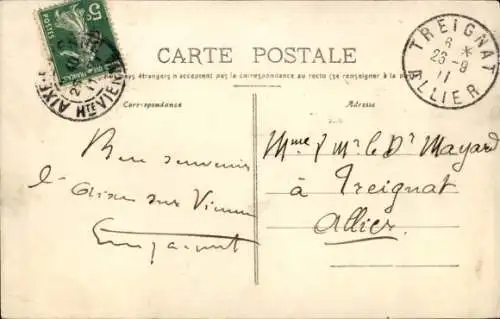 5c
POSTES
AIXE
Hte VIENNE
TREIGNAT
6 *
23-8
11
ALLIER
CARTE POSTALE
pays étrangers n'acceptent pas la correspondance au recto (se renseigner à la
Correspondance
Adresse
Bon souvenir
d'Aixe sur Vienne
Mme & Mr le Dr Mayard
à Treignat
Allier